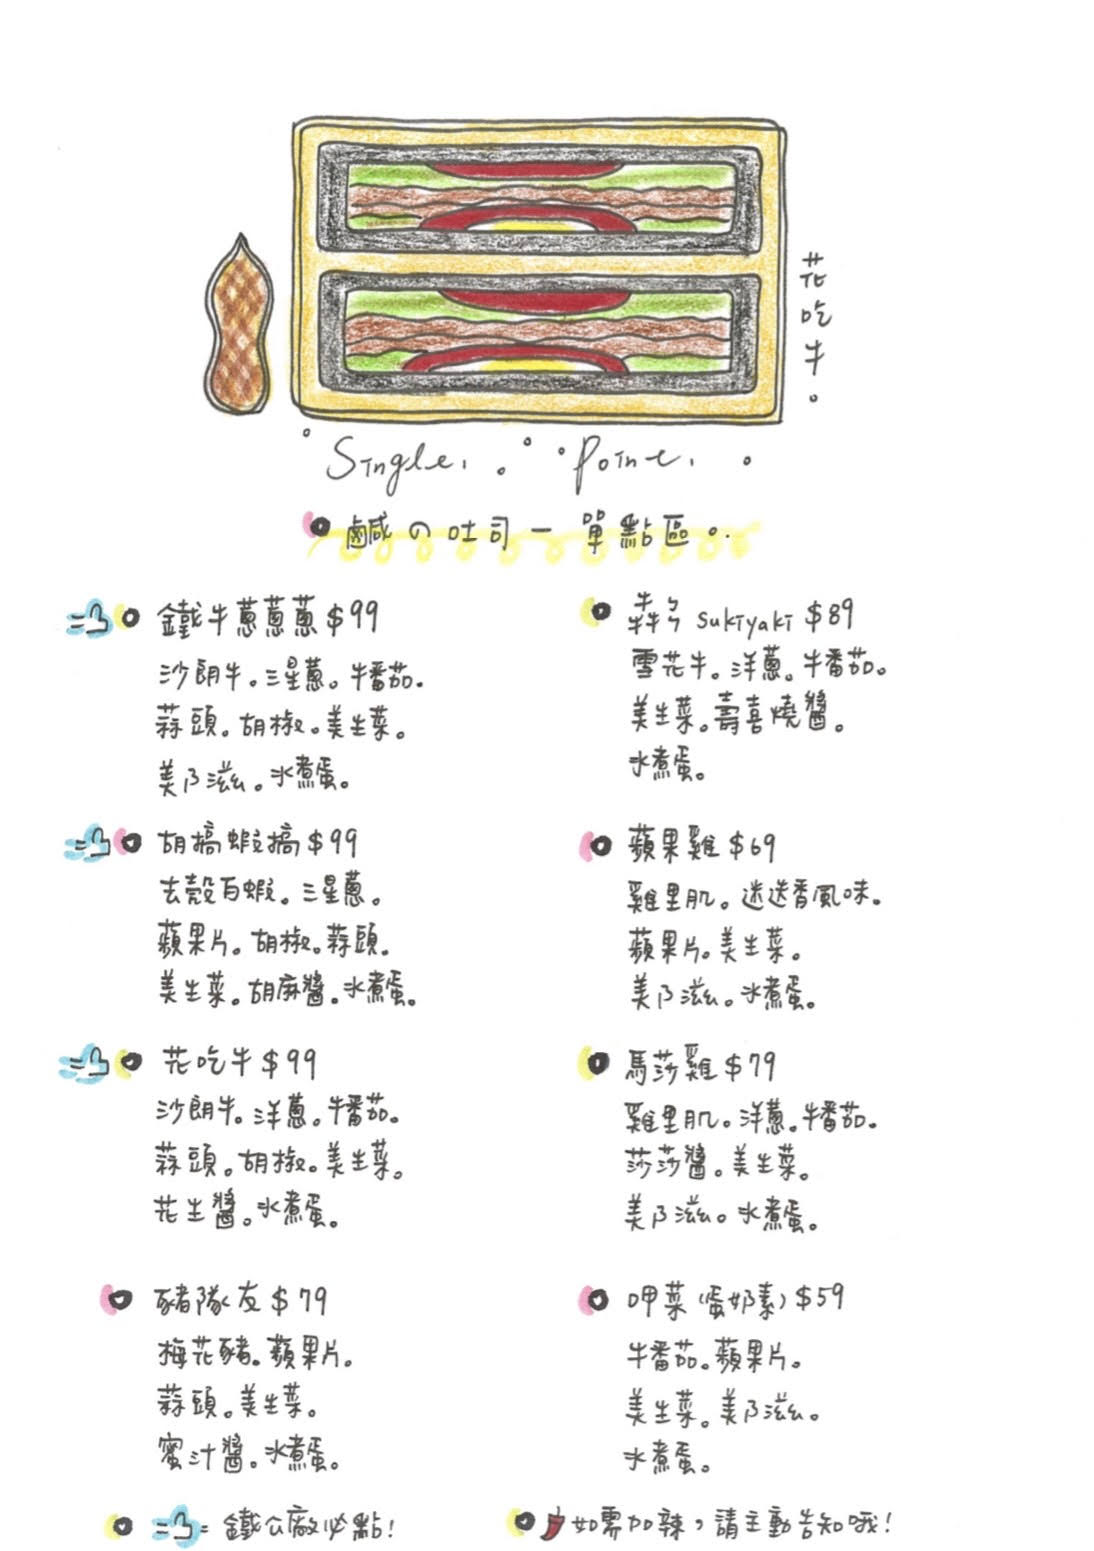 花吃牛。
Single. Point.
鹹の吐司－單點區。
鐵牛蔥蔥蔥 $99
沙朗牛。三星蔥。牛番茄。
蒜頭。胡椒。美生菜。
美乃滋。水煮蛋。
胡搞蝦搞 $99
去殼白蝦。三星蔥。
蘋果片。胡椒。蒜頭。
美生菜。胡麻醬。水煮蛋。
花吃牛 $99
沙朗牛。洋蔥。牛番茄。
蒜頭。胡椒。美生菜。
花生醬。水煮蛋。
豬隊友 $79
梅花豬。蘋果片。
蒜頭。美生菜。
蜜汁醬。水煮蛋。
犇ㄅ sukiyaki $89
雪花牛。洋蔥。牛番茄。
美生菜。壽喜燒醬。
水煮蛋。
蘋果雞 $69
雞里肌。迷迭香風味。
蘋果片。美生菜。
美乃滋。水煮蛋。
馬莎雞 $79
雞里肌。洋蔥。牛番茄。
莎莎醬。美生菜。
美乃滋。水煮蛋。
呷菜(蛋奶素) $59
牛番茄。蘋果片。
美生菜。美乃滋。
水煮蛋。
= 鐵公廠必點!
如需加辣,請主動告知哦!